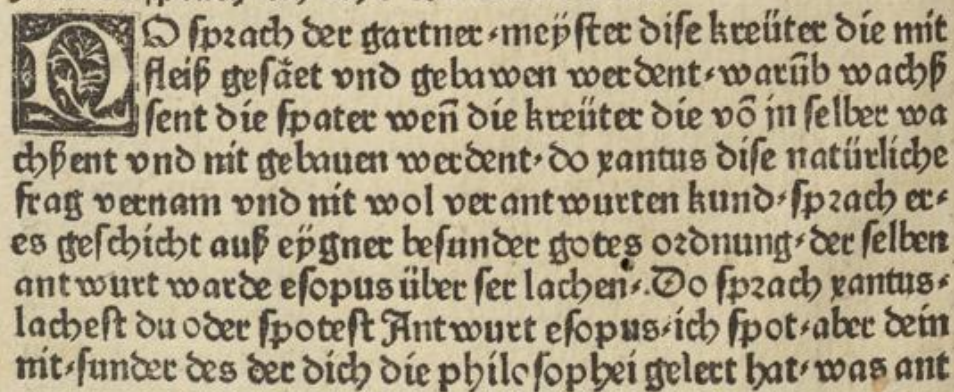 DO sprach der gartner⸗meÿster dise kreüter die mit
fleiß gesäet vnd gebawen werdent⸗warūb wachß
sent die spater weñ die kreüter die vō jn selber wa
chßent vnd nit gebauen werdent⸗do xantus dise natürliche
frag vernam vnd nit wol verantwurten kund⸗sprach er⸗
es geschicht auß eÿgner besunder gotes ordnung⸗der selben
antwurt warde esopus über ser lachen⸗.Do sprach xantus⸗
lachest du oder spotest Antwurt esopus⸗ich spot⸗aber dein
nit⸗sunder des der dich die philosophei gelert hat⸗was ant